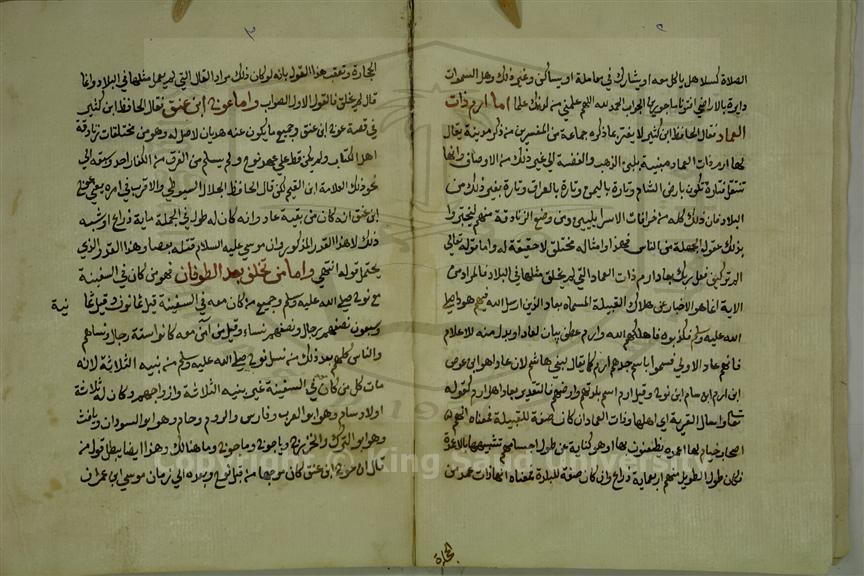 الصلاة كسلا هل ياكل معه او يشارك في معاملة او يساكن وغير ذلك وهل السموات
دايرة بالاراضي افتونا ماجورين الجواب الحمد لله اللهم علمني من لدنك علما اما ارم ذات
العماد فقال الحافظ ابن كثير لا يغتر بما ذكره جماعة من المفسرين من ذكر مدينة يقال
لها ارم ذات العماد مبنية بلبن الذهب والفضة الى غير ذلك من الاوصاف وانها
تنتقل فتارة تكون بارض الشام وتارة باليمن وتارة بالعراق وتارة بغير ذلك من
البلاد فان ذلك كله من خرافات الاسرايليين ومن وضع الزنادقة منهم ليختبروا
بذلك عقول الجهلة من الناس فهذا وامثاله مختلق لا حقيقة له واما قوله تعالى
الم تر كيف فعل ربك بعاد ارم ذات العماد التي لم يخلق مثلها في البلاد فالمراد من
الاية انما هو الاخبار عن هلاك القبيلة المسماة بعاد الذين ارسل الله فيهم هودا صلى
الله عليه وسلم فكذبوه فاهلكهم الله وارم عطف بيان لعاد او بدل منه للاعلام
فانهم عاد الاولى فسموا باسم جدهم ارم كما يقال لبني هاشم لان عادا هو ابن عوص
ابن ارم ابن سام ابن نوح وقيل ارم اسم بلدتهم وارضهم فالتقدير بعاد اهل ارم كقوله
تعالى واسال القرية اي اهلها وذات العماد ان كان صفة للقبيلة فمعناه انهم
اصحاب خيام لها اعمدة يظعنون بها او هو كناية عن طول اجسامهم تشبيهها بالاعمدة
فكان طول الطويل منهم اربعماية ذراع وان كان صفة للبلدة فمعناه انها ذات عمد من
الحجارة
الحجارة وتعقب هذا القول بانه لو كان ذلك مرادا لقال التي لم يعمل مثلها في البلاد وانما
قال لم يخلق فالقول الاول الصواب واما عوج ابن عنق فقال الحافظ ابن كثير
في قصة عوج ابن عنق وجميع ما يكون عنه هذيان لا اصل له وهو من مختلقات زنادقة
اهل الكتاب ولم يكن قط على عهد نوح ولم يسلم من الغرق من الكفار احد وسبقه الى
نحو ذلك العلامة ابن القيم لكن قال الحافظ الجلال السيوطي والاقرب في امره يعني عوج
ابن عنق انه كان من بقية عاد وانه كان له طول في الجملة ماية ذراع او شبه
ذلك لا هذا القدر المذكور وان موسى عليه السلام قتله بعصاه وهذا القدر الذي
يحتمل قوله انتهى واما من تخلف بعد الطوفان فهو من كان في السفينة
مع نوح صلى الله عليه وسلم وجميع من كان معه في السفينة قيل ثمانون وقيل ثمانية
وسبعون نصفهم رجال ونصفهم نساء وقيل من امن معه كانوا ستة رجال ونساهم
والناس كلهم بعد ذلك من نسل نوح صلى الله عليه وسلم من بنيه الثلاثة لانه
مات كل من كان في السفينة غير بنيه الثلاثة وازواجهم وكان له ثلاثة
اولاد سام وهو ابو العرب وفارس والروم وحام وهو ابو السودان ويافث
وهو ابو الترك والخزر وياجوج وماجوج وما هنالك وهذا ايضا يبطل قول من
قال ان عوج ابن عنق كان موجودا من قبل نوح وبعده الى زمان موسى ابن عمران